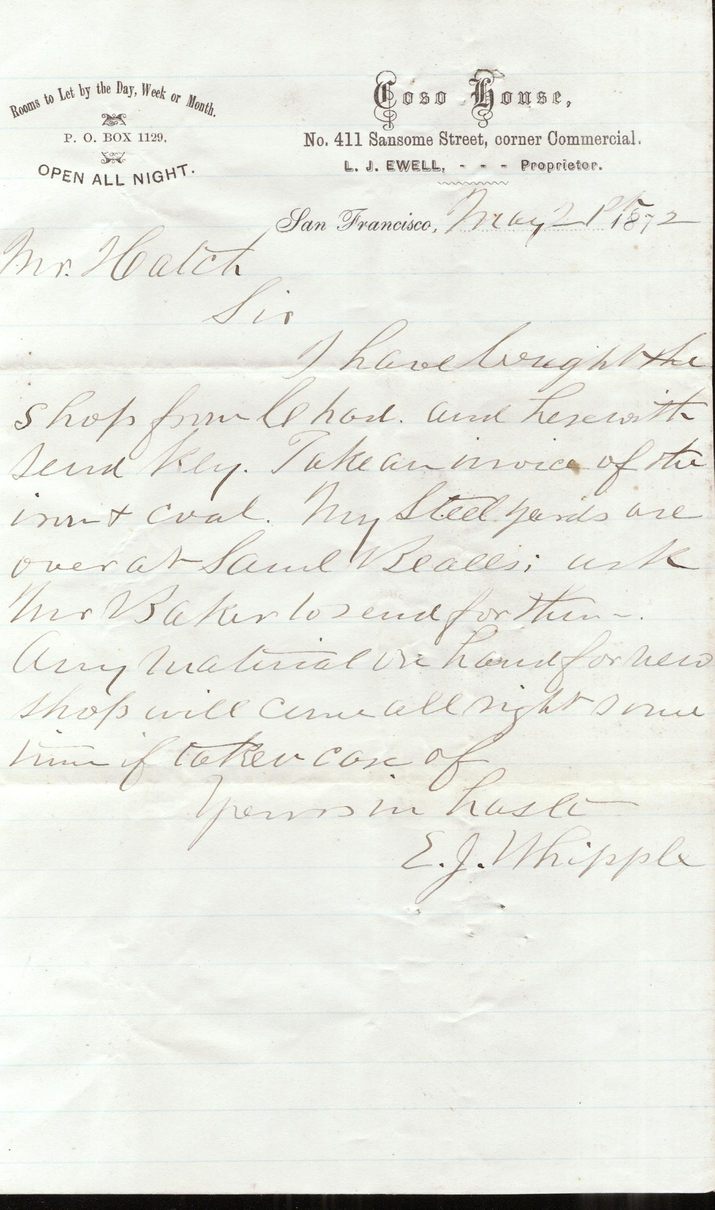 Rooms to Let by the Day, Week or Month.
P. O. BOX 1129.
OPEN ALL NIGHT.
Coso House,
No. 411 Sansome Street, corner Commercial.
L. J. EWELL, - - - Proprietor.
San Francisco, May 21st 1872
Mr. Hatch
Sir
I have bought the
shop from and herewith
send key. Take an invoice of the
iron & coal. My Steelyards are
over at Saml Bealls; ask
Mr Baker to send for them.
Any material on hand for new
shop will come all right some
time if taken care of
Yours in haste
E. J. Whipple